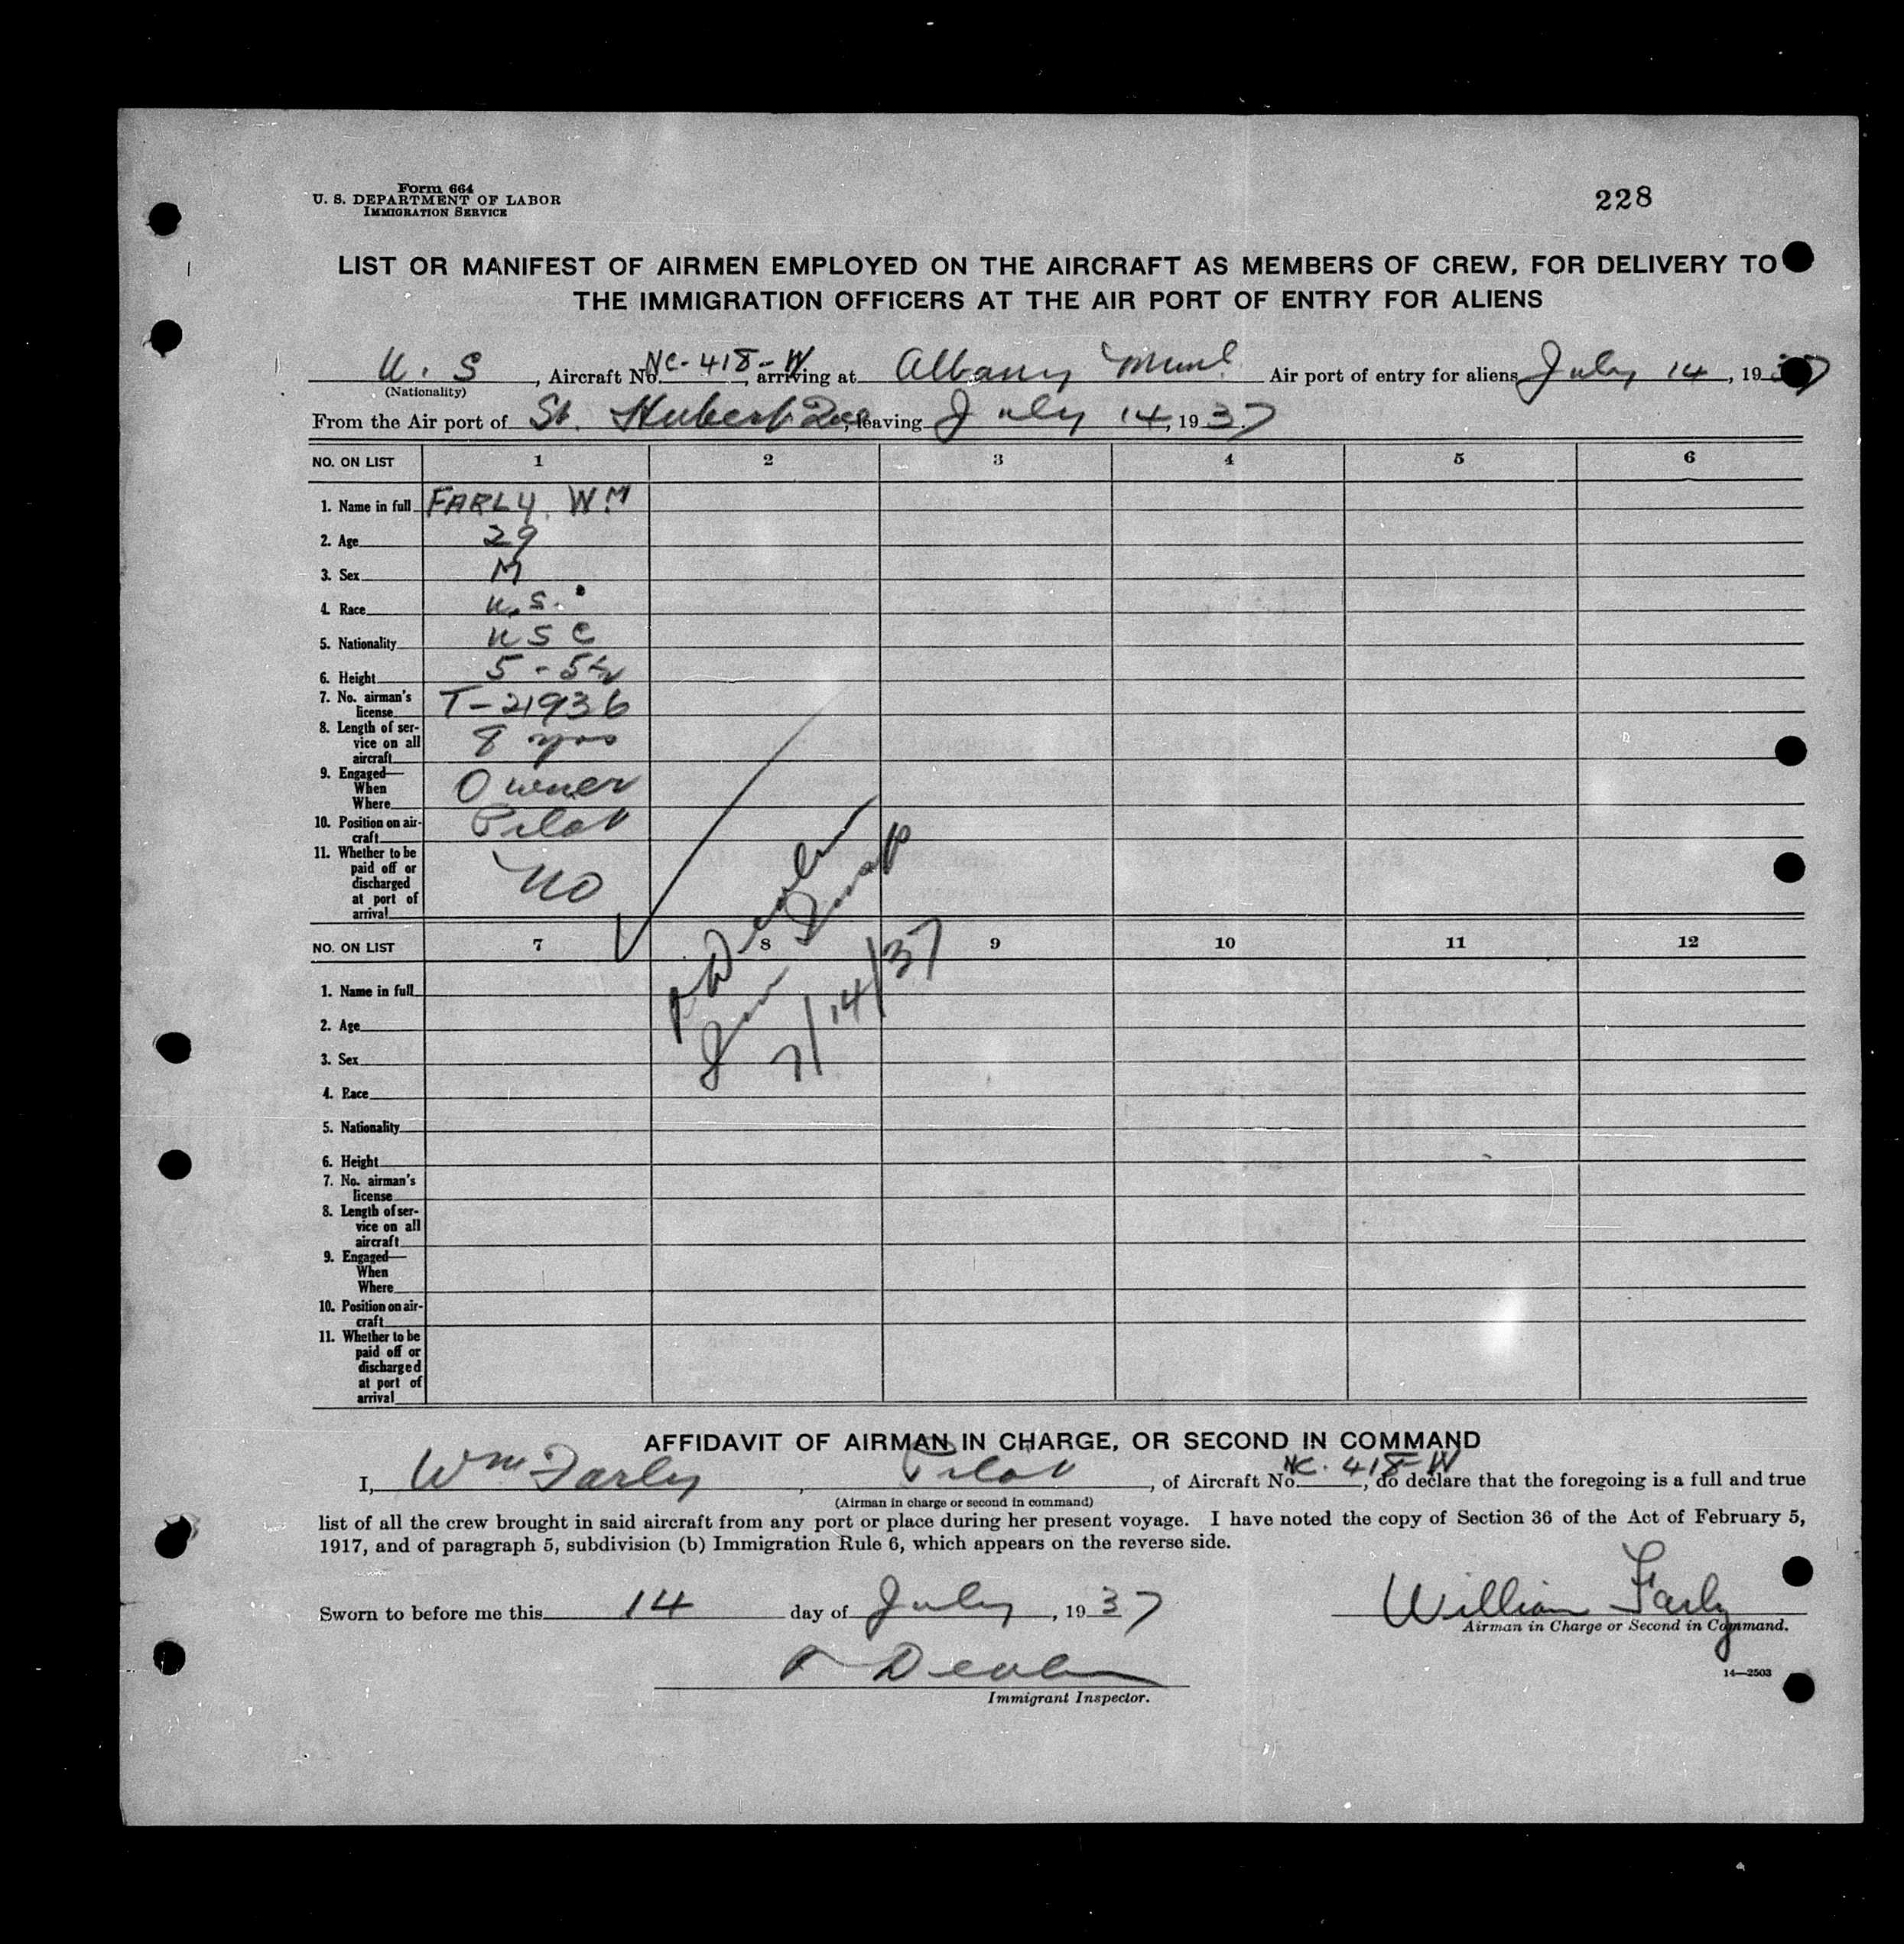 Form 664
U. S. DEPARTMENT OF LABOR
IMMIGRATION SERVICE
228
LIST OR MANIFEST OF AIRMEN EMPLOYED ON THE AIRCRAFT AS MEMBERS OF CREW, FOR DELIVERY TO
THE IMMIGRATION OFFICERS AT THE AIR PORT OF ENTRY FOR ALIENS
U. S, Aircraft No. NC-418-W, arriving at Albany Munl Air port of entry for aliens July 14, 1937
(Nationality)
From the Air port of St. Hubert Que, leaving July 14, 1937
NO. ON LIST 1 2 3 4 5 6
1. Name in full FARLY, WM
2. Age 29
3. Sex M
4. Race U.S.
5. Nationality USC
6. Height 5-5½
7. No. airman's
license T-21936
8. Length of ser-
vice on all
aircraft 8 yrs
9. Engaged—
When
Where Owner
10. Position on air-
craft Pilot
11. Whether to be
paid off or
discharged
at port of
arrival No
7/14/37
NO. ON LIST 7 8 9 10 11 12
1. Name in full
2. Age
3. Sex
4. Race
5. Nationality
6. Height
7. No. airman's
license
8. Length of ser-
vice on all
aircraft
9. Engaged—
When
Where
10. Position on air-
craft
11. Whether to be
paid off or
discharged
at port of
arrival
AFFIDAVIT OF AIRMAN IN CHARGE, OR SECOND IN COMMAND
I, Wm Farly, Pilot, of Aircraft No. NC. 418-W, do declare that the foregoing is a full and true
(Airman in charge or second in command)
list of all the crew brought in said aircraft from any port or place during her present voyage. I have noted the copy of Section 36 of the Act of February 5,
1917, and of paragraph 5, subdivision (b) Immigration Rule 6, which appears on the reverse side.
Sworn to before me this 14 day of July, 1937
William Farly
Airman in Charge or Second in Command.
Immigrant Inspector.
14—2503